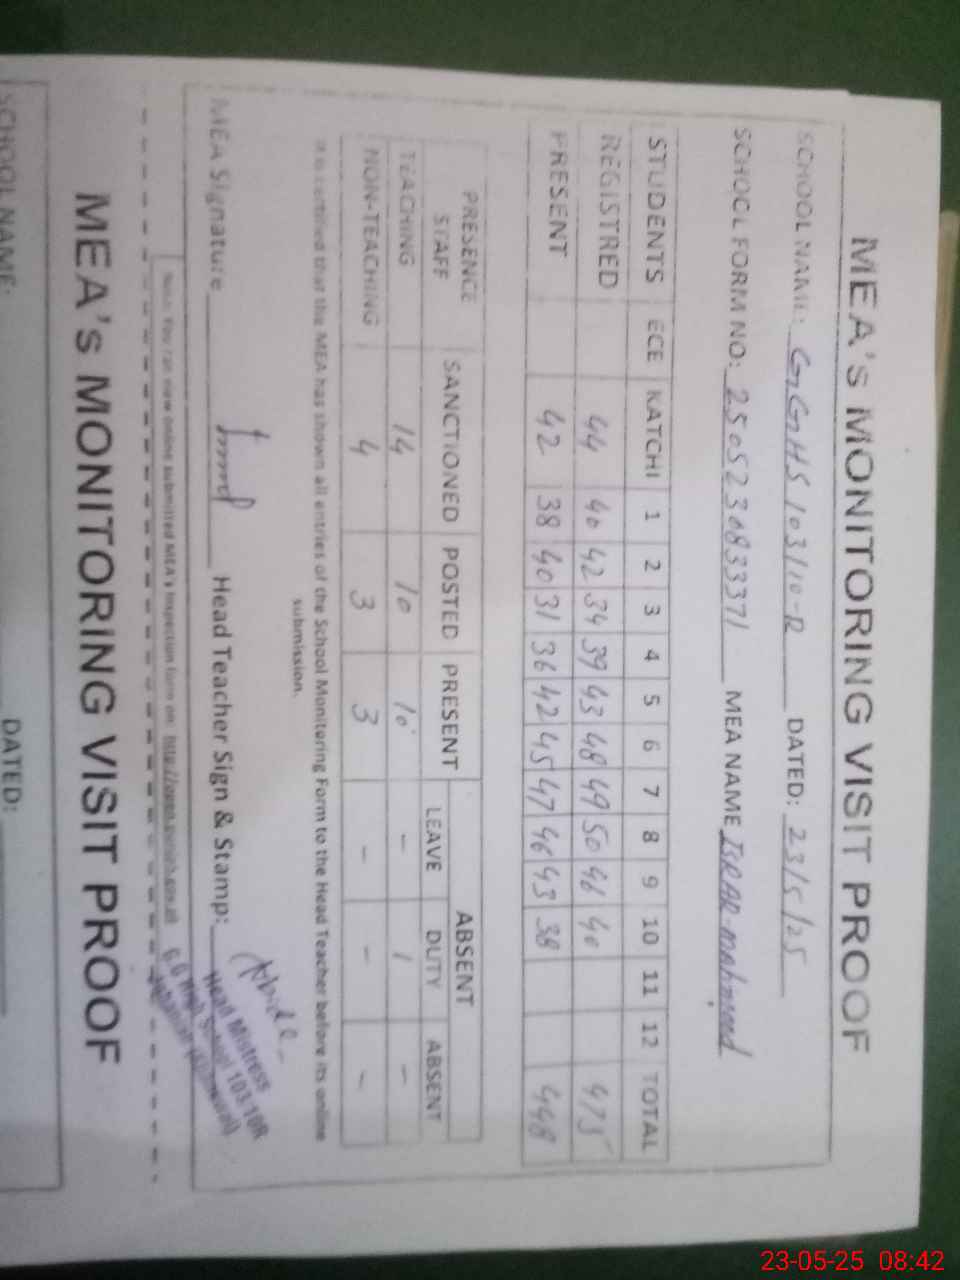 MEA's MONITORING VISIT PROOF
SCHOOL NAME: GGHS 103/10-R DATED: 23/5/25
SCHOOL FORM NO: 250523083371 MEA NAME ISRAR mahmood
STUDENTS ECE KATCHI 1 2 3 4 5 6 7 8 9 10 11 12 TOTAL
REGISTRED 44 40 42 34 39 43 48 49 50 46 40 475
PRESENT 42 38 40 31 36 42 45 47 46 43 38 448
PRESENCE STAFF SANCTIONED POSTED PRESENT ABSENT
LEAVE DUTY ABSENT
TEACHING 14 10 10 - 1 -
NON-TEACHING 4 3 3 - - -
It is certified that the MEA has shown all entries of the School Monitoring Form to the Head Teacher before its online
submission.
MEA Signature Head Teacher Sign & Stamp:
Head Mistress
High School 103/10R
Note: You can view online submitted MEA's Inspection Form on
MEA's MONITORING VISIT PROOF
SCHOOL NAME: DATED:
23-05-25 08:42